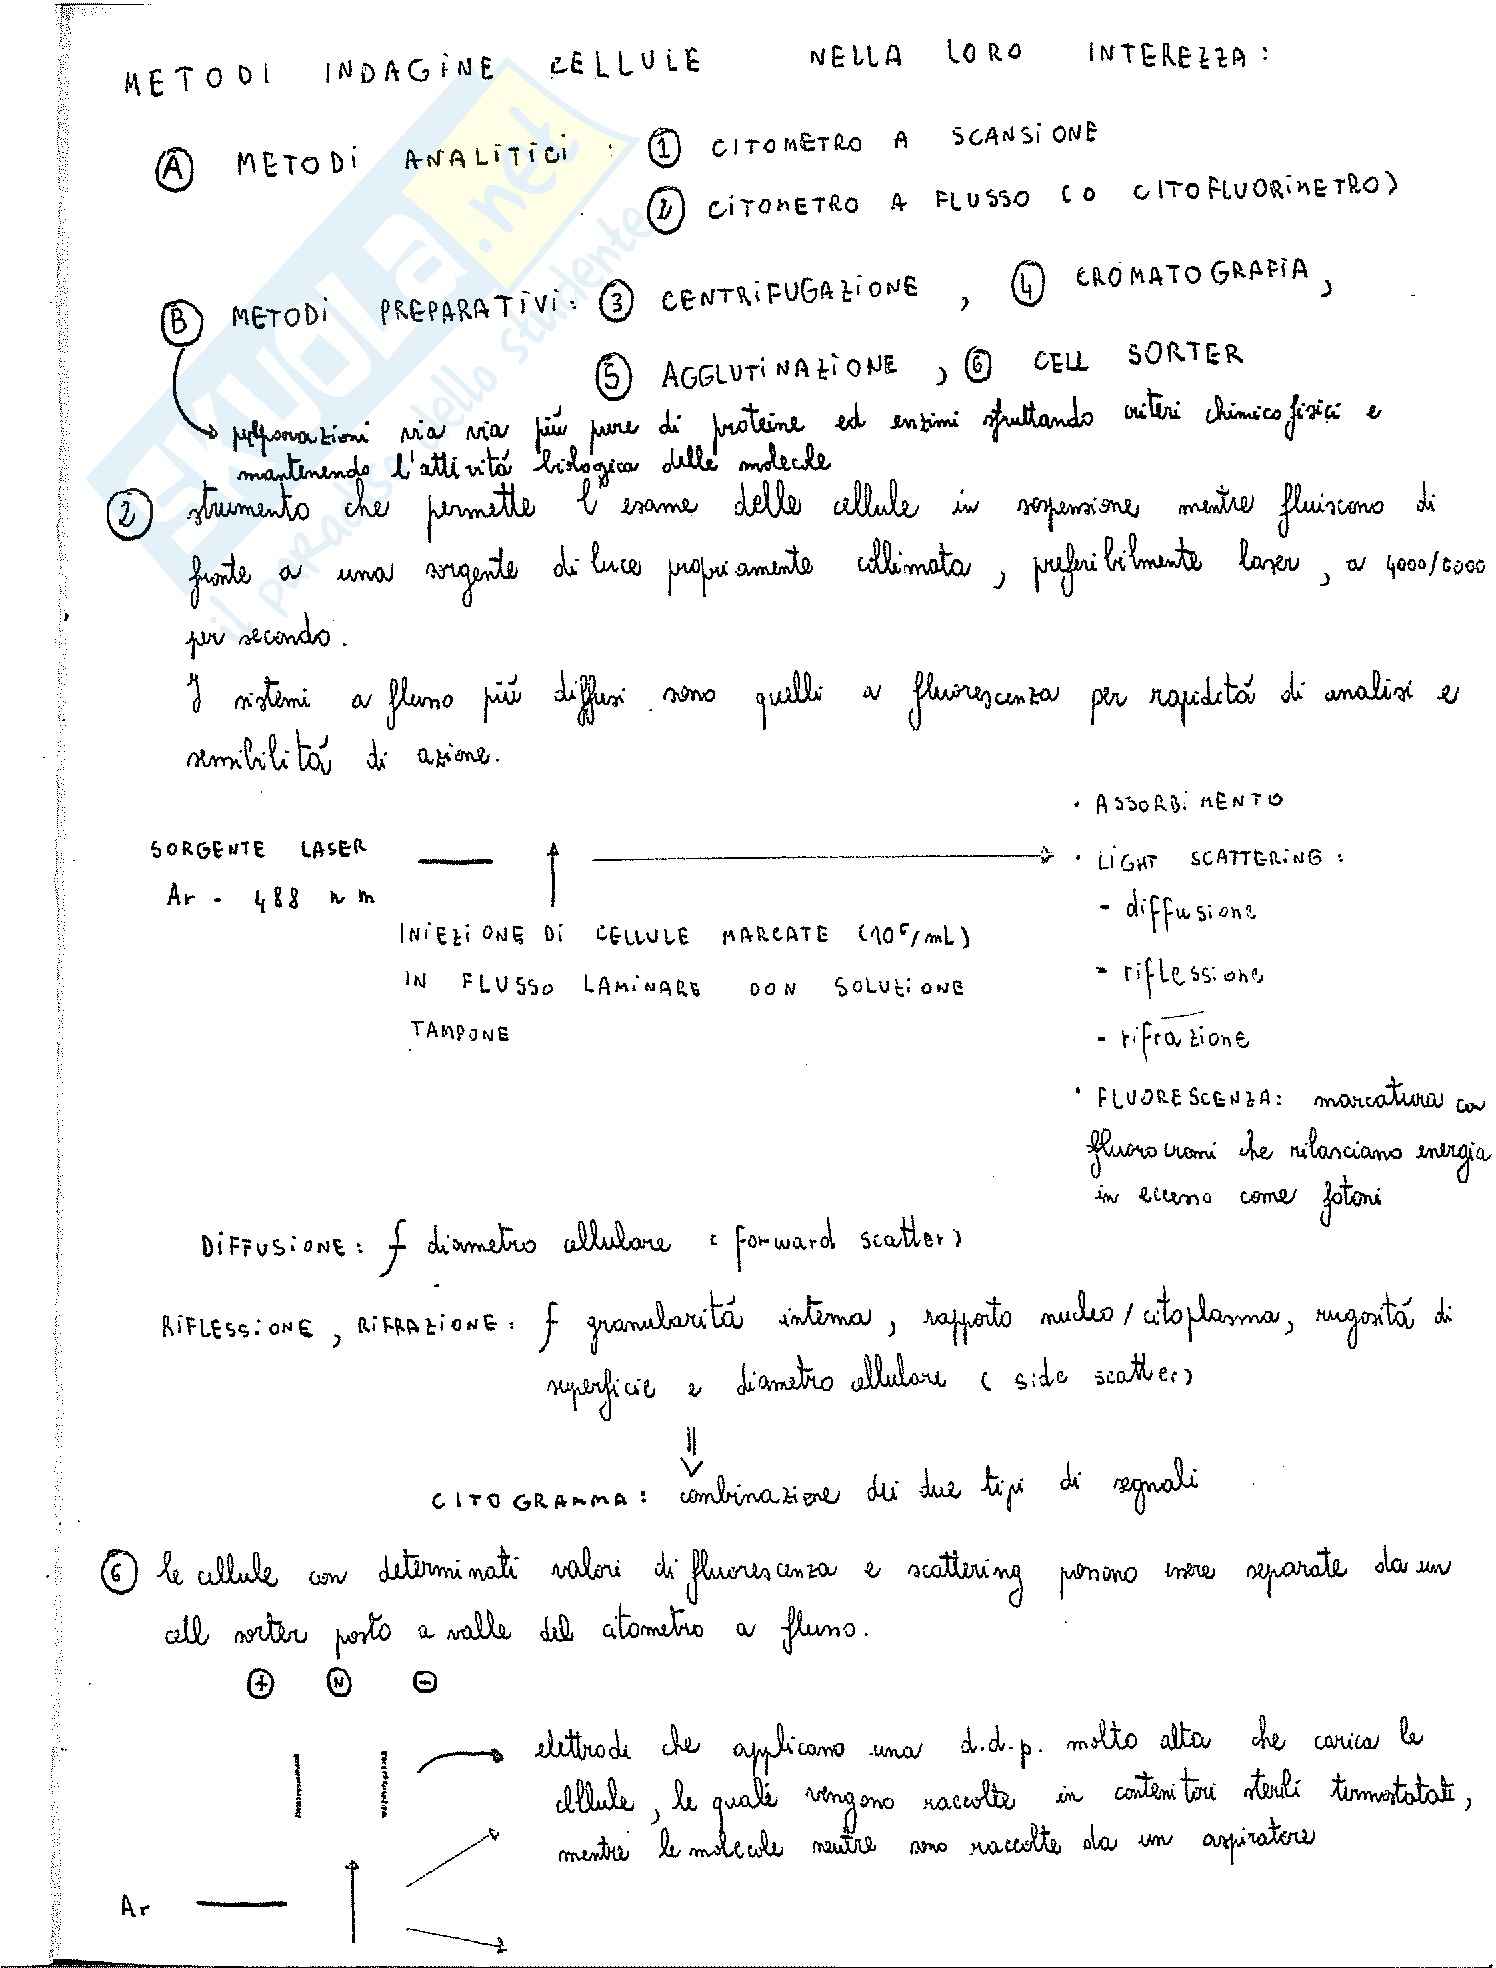 METODI INDAGINE CELLULE NELLA LORO INTEREZZA:
A METODI ANALITICI : 1 CITOMETRO A SCANSIONE
2 CITOMETRO A FLUSSO (O CITOFLUORIMETRO)
B METODI PREPARATIVI: 3 CENTRIFUGAZIONE, 4 CROMATOGRAFIA,
5 AGGLUTINAZIONE, 6 CELL SORTER
preparazioni via via più pure di proteine ed enzimi sfruttando criteri chimico fisici e
mantenendo l'attività biologica delle molecole
2 strumento che permette l'esame delle cellule in sospensione mentre fluiscono di
fronte a una sorgente di luce propriamente collimata, preferibilmente laser, a 4000/6000
per secondo.
I sistemi a flusso più diffusi sono quelli a fluorescenza per rapidità di analisi e
sensibilità di azione.
• ASSORBIMENTO
SORGENTE LASER
• LIGHT SCATTERING:
Ar - 488 nm
- diffusione
INIEZIONE DI CELLULE MARCATE (10⁶/mL)
- riflessione
IN FLUSSO LAMINARE CON SOLUZIONE
TAMPONE
- rifrazione
• FLUORESCENZA: marcatura con
fluorocromi che rilasciano energia
in eccesso come fotoni
DIFFUSIONE: f diametro cellulare (forward scatter)
RIFLESSIONE, RIFRAZIONE: f granularità interna, rapporto nucleo/citoplasma, rugosità di
superficie e diametro cellulare (side scatter)
⇓
CITOGRAMMA: combinazione dei due tipi di segnali
6 le cellule con determinati valori di fluorescenza e scattering possono essere separate da un
cell sorter posto a valle del citometro a flusso.
+ N −
elettrodi che applicano una d.d.p. molto alta che carica le
cellule, le quali vengono raccolte in contenitori sterili termostatati,
mentre le molecole neutre sono raccolte da un aspiratore
Ar
SKUOLA.net
il paradiso dello studente